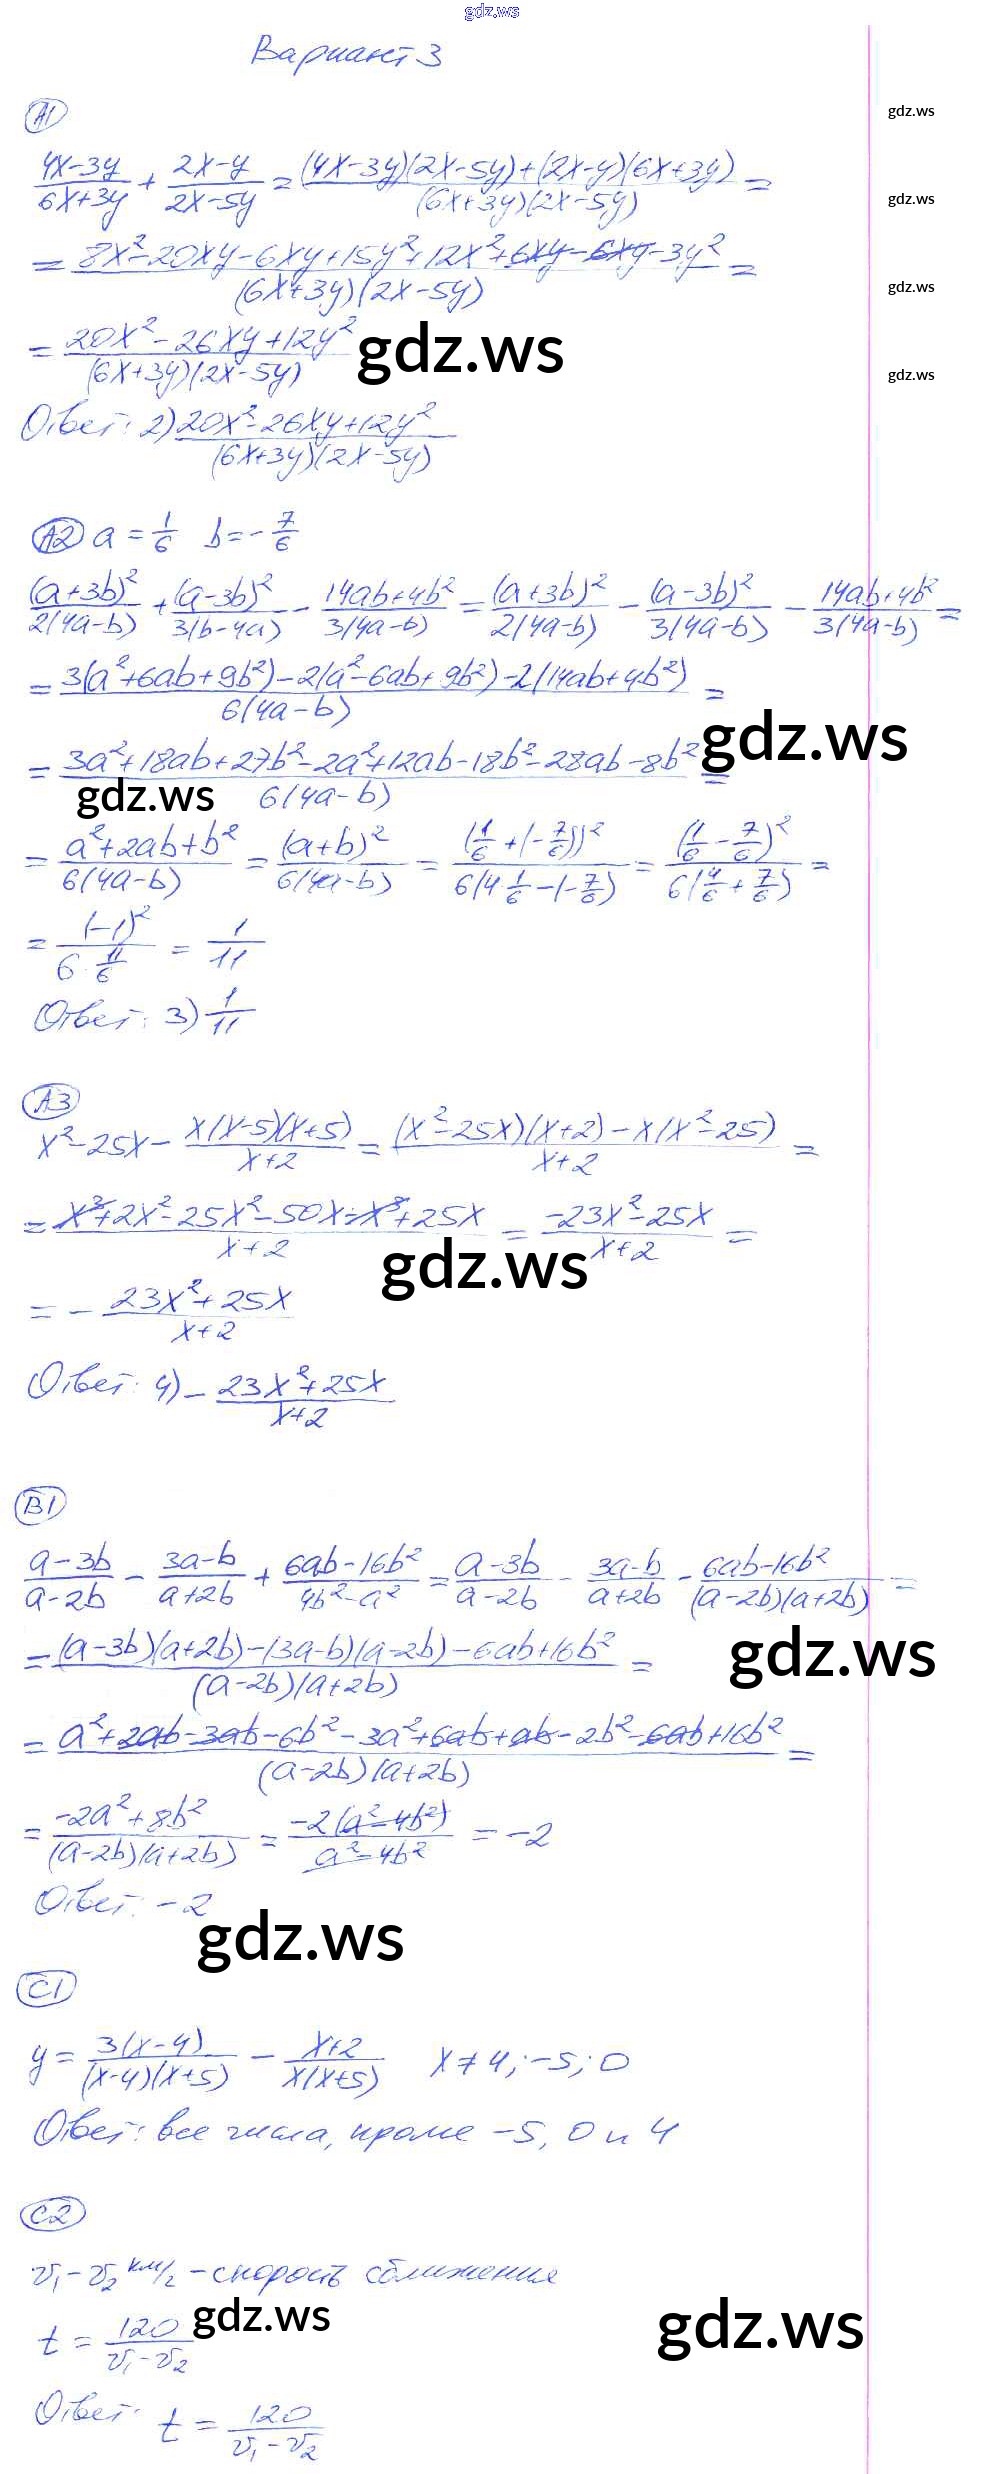 gdz.ws
Вариант 3
gdz.ws
А1
(4x-3y)/(6x+3y) + (2x-y)/(2x-5y) = ((4x-3y)(2x-5y)+(2x-y)(6x+3y))/((6x+3y)(2x-5y)) =
gdz.ws
= (8x²-20xy-6xy+15y²+12x²+6xy-6xy-3y²)/((6x+3y)(2x-5y)) =
gdz.ws
= (20x²-26xy+12y²)/((6x+3y)(2x-5y))
gdz.ws
gdz.ws
Ответ: 2) (20x²-26xy+12y²)/((6x+3y)(2x-5y))
А2 a = 1/6 b = -7/6
(a+3b)²/(2(4a-b)) + (a-3b)²/(3(b-4a)) - (14ab+4b²)/(3(4a-b)) = (a+3b)²/(2(4a-b)) - (a-3b)²/(3(4a-b)) - (14ab+4b²)/(3(4a-b)) =
= (3(a²+6ab+9b²)-2(a²-6ab+9b²)-2(14ab+4b²))/(6(4a-b)) =
gdz.ws
= (3a²+18ab+27b²-2a²+12ab-18b²-28ab-8b²)/(6(4a-b)) =
gdz.ws
= (a²+2ab+b²)/(6(4a-b)) = (a+b)²/(6(4a-b)) = (1/6+(-7/6))²/(6(4·1/6-(-7/6))) = (1/6-7/6)²/(6(4/6+7/6)) =
= (-1)²/(6·11/6) = 1/11
Ответ: 3) 1/11
А3
x²-25x - x(x-5)(x+5)/(x+2) = ((x²-25x)(x+2)-x(x²-25))/(x+2) =
= (x³+2x²-25x²-50x-x³+25x)/(x+2) = (-23x²-25x)/(x+2) =
gdz.ws
= - (23x²+25x)/(x+2)
Ответ: 4) - (23x²+25x)/(x+2)
В1
(a-3b)/(a-2b) - (3a-b)/(a+2b) + (6ab-16b²)/(4b²-a²) = (a-3b)/(a-2b) - (3a-b)/(a+2b) - (6ab-16b²)/((a-2b)(a+2b)) =
= ((a-3b)(a+2b)-(3a-b)(a-2b)-6ab+16b²)/((a-2b)(a+2b)) =
gdz.ws
= (a²+2ab-3ab-6b²-3a²+6ab+ab-2b²-6ab+16b²)/((a-2b)(a+2b)) =
= (-2a²+8b²)/((a-2b)(a+2b)) = -2(a²-4b²)/(a²-4b²) = -2
Ответ: -2
gdz.ws
С1
y = 3(x-4)/((x-4)(x+5)) - (x+2)/(x(x+5)) x ≠ 4; -5; 0
Ответ: все числа, кроме -5, 0 и 4
С2
v₁-v₂ км/ч - скорость сближения
gdz.ws
t = 120/(v₁-v₂)
gdz.ws
Ответ: t = 120/(v₁-v₂)